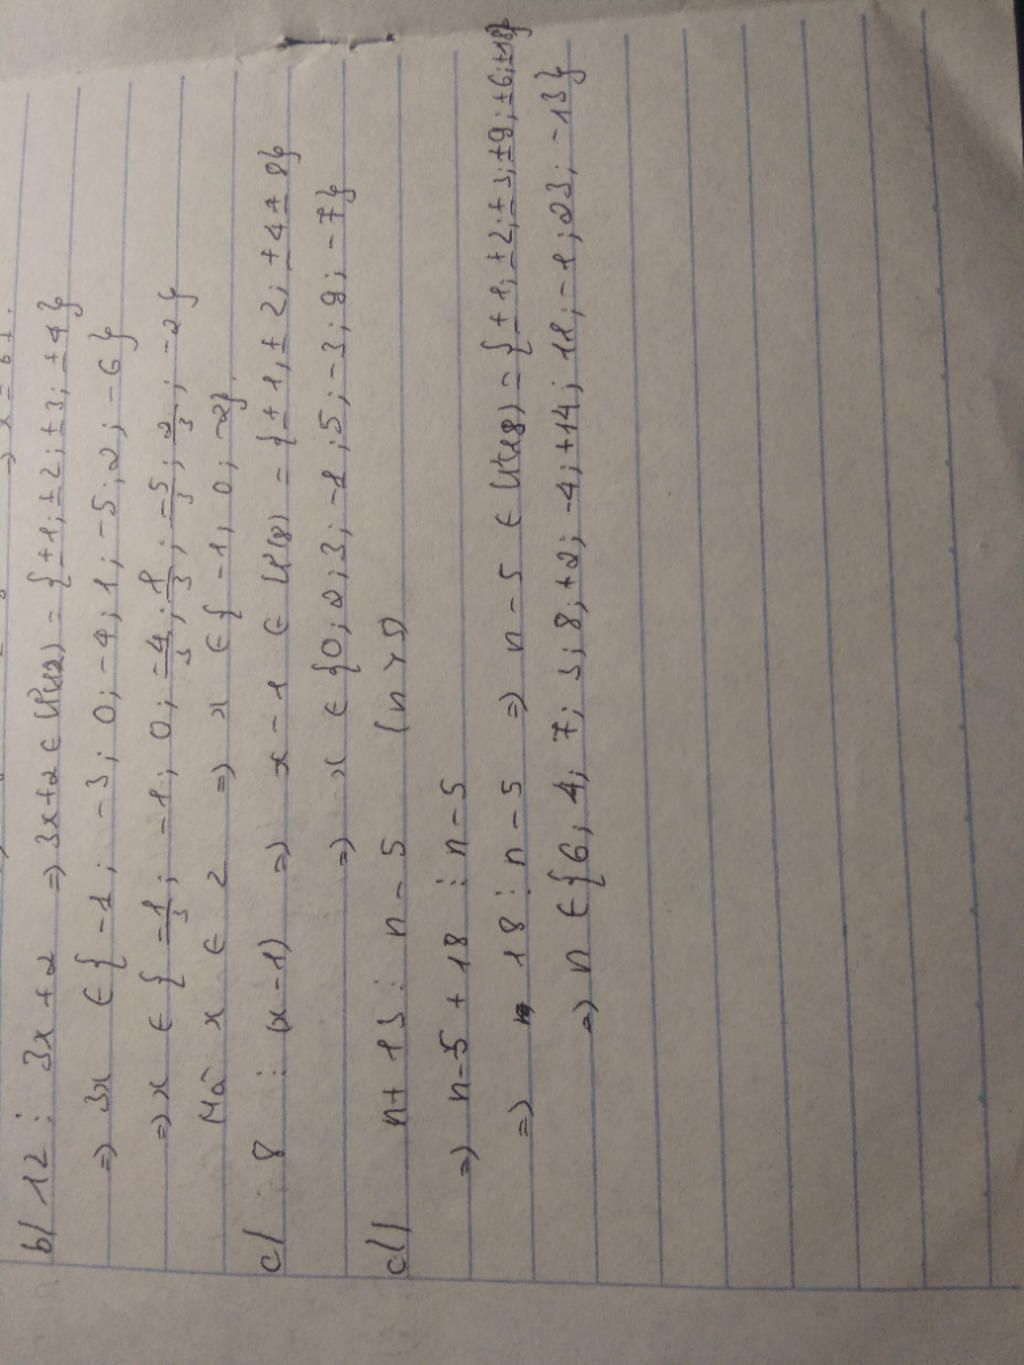 =) x = 6}.
b/ 12 ⋮ 3x + 2 =) 3x+2 ∈ Ư(12) = {±1; ±2; ±3; ±4}
=) 3x ∈ {-1; -3; 0; -4; 1; -5; 2; -6}
=) x ∈ {-1/3; -1; 0; -4/3; 1/3; -5/3; 2/3; -2}
Mà x ∈ Z =) x ∈ {-1, 0; -2}.
c/ 8 ⋮ (x-1) =) x - 1 ∈ Ư(8) = {±1, ±2; ±4 ± 8}
=) x ∈ {0; 2; 3; -1; 5; -3; 9; -7}
d/ n+13 ⋮ n-5 (n>5)
=) n-5 + 18 ⋮ n-5
=) 18 ⋮ n-5 =) n-5 ∈ Ư(18) = {±1; ±2; ±3; ±9; ±6; ±18}
=) n ∈ {6; 4; 7; 3; 8; +2; -4; +14; 11; -1; 23; -13}